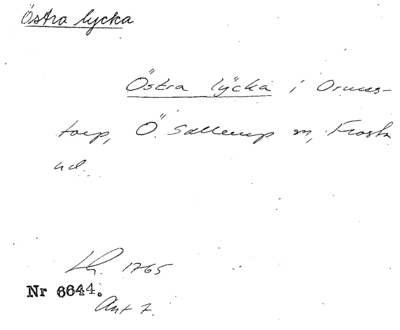 Östra lycka
Östra lycka i Ormas-
torp, Ö. Sallerup sn, Frosta
hd.
Lh. 1765
Nr 6644.
Akt 7.